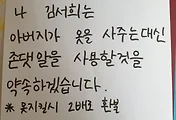 나 김서희는
아버지가 옷을 사주는대신
존댓말을 사용할것을
약속하겠습니다.
* 못지킬시 2배로 환불